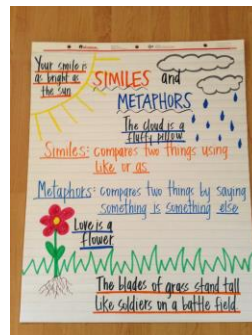 Your smile is
as bright as
the sun
SIMILES and
METAPHORS
The cloud is a
fluffy pillow
Similes: compares two things using
like or as
Metaphors: compares two things by saying
something is something else
Love is a
flower
The blades of grass stand tall
like soldiers on a battle field.